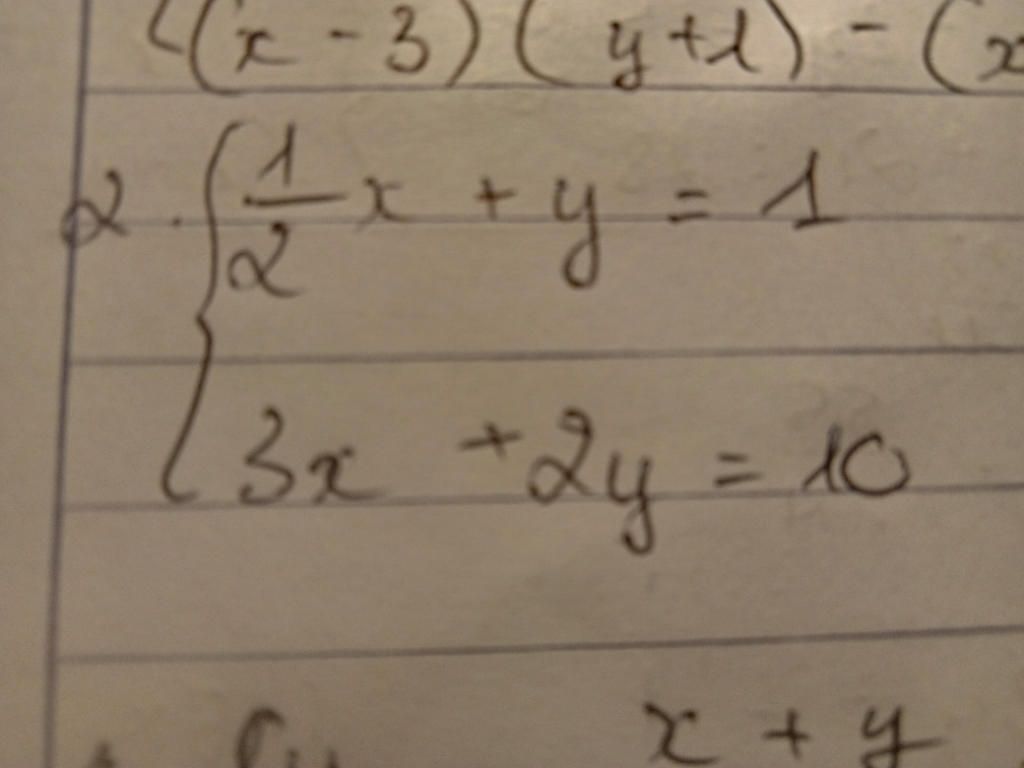 (x - 3) ( y + 1) - (x
2. { 1/2 x + y = 1
3x + 2y = 10
x + y